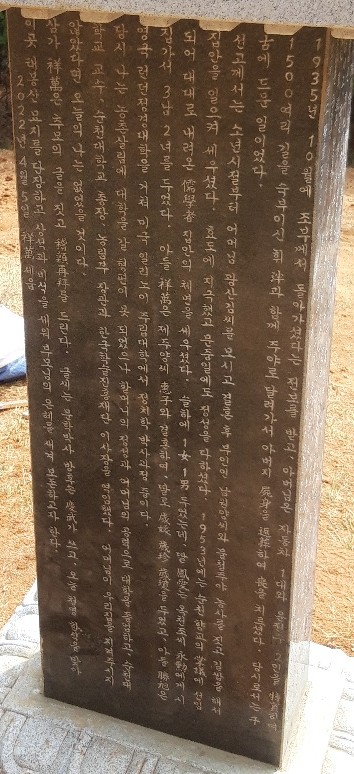 1935년 10월에 조부께서 돌아가셨다는 전보를 받고, 아버님은 자동차 1대와 운전수 2인을 特貰하여
1500여리 길을 숙부이신 과 함께 주야로 달려가서 아버지 屍身을 返葬하여 喪을 치르셨다. 당시로서는
드문 일이었다.
선고께서는 소년시절부터 어머님 광산김씨를 모시고 결혼 후 부인인 불철주야 농사를 짓고 길쌈을 해서
집안을 일으켜 세우셨다. 효도에 지극했고 문중일에도 정성을 다하셨다. 1953년에는 순천 향교의 掌議에 선임
되어 대대로 내려온 儒學者 집안의 체면을 세우셨다. 슬하에 1女 1男 두었는데, 딸 鳳愛는 옥천조씨 永勳에게 시
집가서 3남 2녀를 두었다. 아들 祥萬은 제주양씨 惠子와 결혼하여, 딸로 두었고, 아들 勝旭은
영국 런던정경대학을 거쳐 미국 일리노이 주립대학에서 정치학 박사과정 중이다.
당시 나는 농촌살림에 대학을 갈 형편이 못 되었으나 할머니의 정성과 어머님의 공덕으로 대학을 졸업하고, 순천대
학교 교수, 순천대학교 총장, 통일부 장관과 한국학술진흥재단 이사장을 역임했다. 지켜주지
않았다면 오늘의 나는 없었을 것이다.
삼가 祥萬은 추모의 글을 짓고 稽顙再拜를 드린다. 글씨는 문학박사 쓰고, 돌은 맡아
이곳 묘지를 단장하고 상석과 비석을 세워 부모님의 은혜를 새겨 보존하고자 한다.
2022년 4월 5일 祥萬 세움